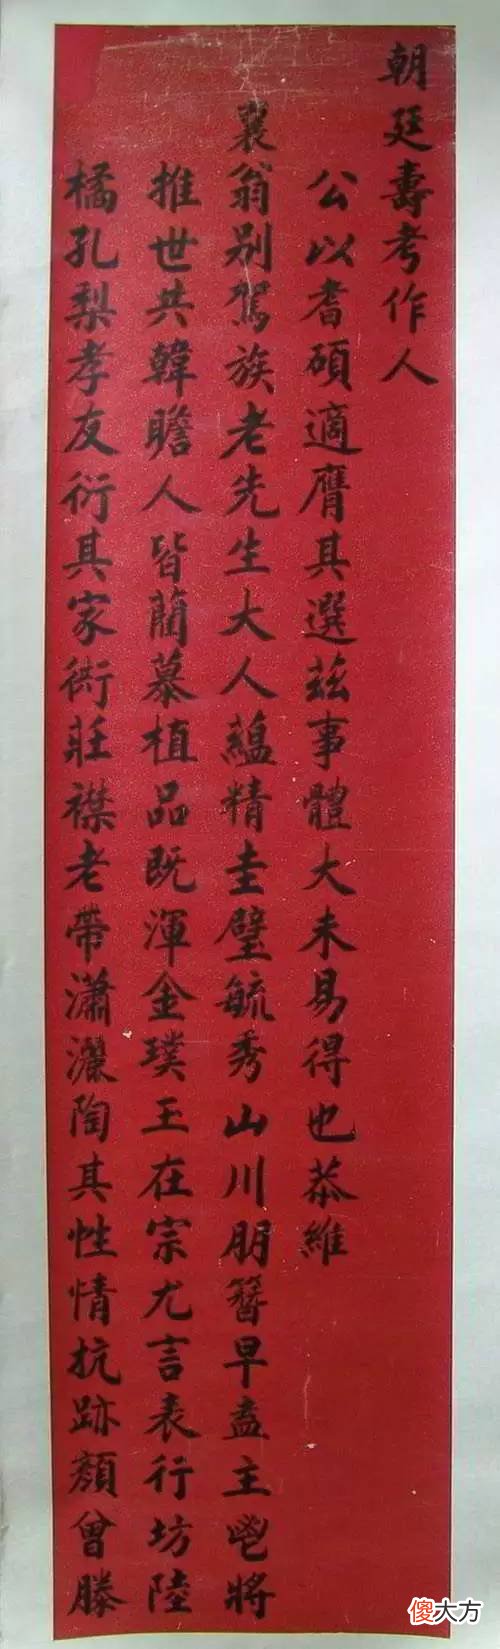 朝廷壽考作人
公以耆碩適膺其選茲事體大未易得也恭維
襄翁別駕族老先生大人蘊精圭璧毓秀山川朋簪早盍主鬯將
推世共韓瞻人皆藺慕植品既渾金璞玉在宗尤言表行坊陸
橘孔梨孝友衍其家衖莊襟老帶瀟灑陶其性情抗跡顏曾滕
傻大方